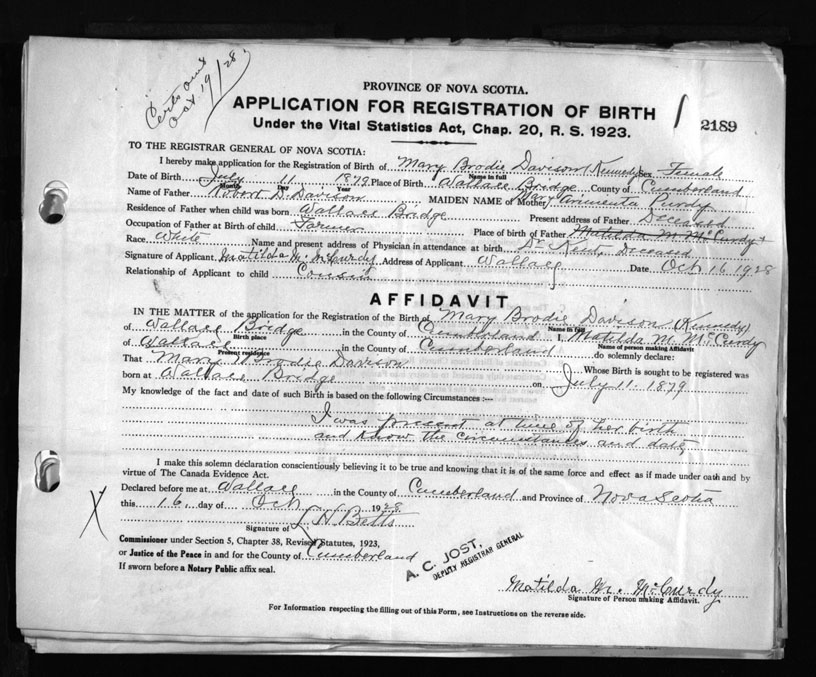 Certs and
Oct 19/28
PROVINCE OF NOVA SCOTIA.
APPLICATION FOR REGISTRATION OF BIRTH
2189
Under the Vital Statistics Act, Chap. 20, R. S. 1923.
TO THE REGISTRAR GENERAL OF NOVA SCOTIA:
I hereby make application for the Registration of Birth of Mary Brodie Davison (Kennedy) Sex Female
Name in full
Date of Birth July 11 1879 Place of Birth Wallace Bridge County of Cumberland
Month Day Year
Name of Father Robert D. Davison MAIDEN NAME of Mother Mary Armenta Purdy
Residence of Father when child was born Wallace Bridge Present address of Father Deceased
Occupation of Father at Birth of child Farmer Place of birth of Father Matilda M. McCurdy
Race White Name and present address of Physician in attendance at birth Dr Kent, Deceased
Signature of Applicant Matilda M. McCurdy Address of Applicant Wallace Date Oct 16 1928
Relationship of Applicant to child Cousin
AFFIDAVIT
IN THE MATTER of the application for the Registration of the Birth of Mary Brodie Davison (Kennedy)
Name in full
of Wallace Bridge in the County of Cumberland I, Matilda M. McCurdy
Birth place Name of person making Affidavit
of Wallace in the County of Cumberland do solemnly declare:
Present residence
That Mary Brodie Davison Whose Birth is sought to be registered was
born at Wallace Bridge on July 11 - 1879
My knowledge of the fact and date of such Birth is based on the following Circumstances :—
I was present at time of her birth
and know the circumstances and date
I make this solemn declaration conscientiously believing it to be true and knowing that it is of the same force and effect as if made under oath and by
virtue of The Canada Evidence Act.
Declared before me at Wallace in the County of Cumberland and Province of Nova Scotia
this 16 day of Oct 1928
X
Signature of Betts
Commissioner under Section 5, Chapter 38, Revised Statutes, 1923,
or Justice of the Peace in and for the County of Cumberland
If sworn before a Notary Public affix seal.
A. C. JOST,
DEPUTY REGISTRAR GENERAL
Matilda M. McCurdy
Signature of Person making Affidavit.
For Information respecting the filling out of this Form, see Instructions on the reverse side.